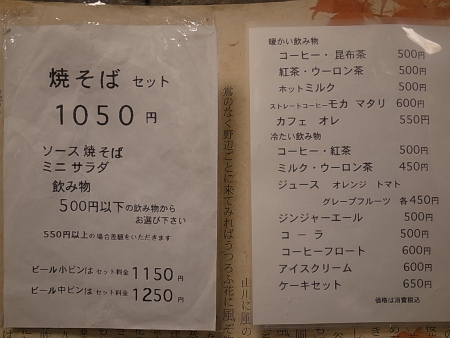 焼そば セット
1050円
ソース 焼そば
ミニ サラダ
飲み物
500円以下の飲み物から
お選び下さい
550円以上の場合差額をいただきます
ビール小ビンは セット料金 1150円
ビール中ビンは セット料金 1250円
鶯のなく野辺ごとに来てみればうつろふ花に風ぞ
山川に風の
暖かい飲み物
コーヒー・昆布茶 500円
紅茶・ウーロン茶 500円
ホットミルク 500円
ストレートコーヒーモカ マタリ 600円
カフェ オレ 550円
冷たい飲み物
コーヒー・紅茶 500円
ミルク・ウーロン茶 450円
ジュース オレンジ トマト
グレープフルーツ 各450円
ジンジャーエール 500円
コーラ 500円
コーヒーフロート 600円
アイスクリーム 600円
ケーキセット 650円
価格は消費税込